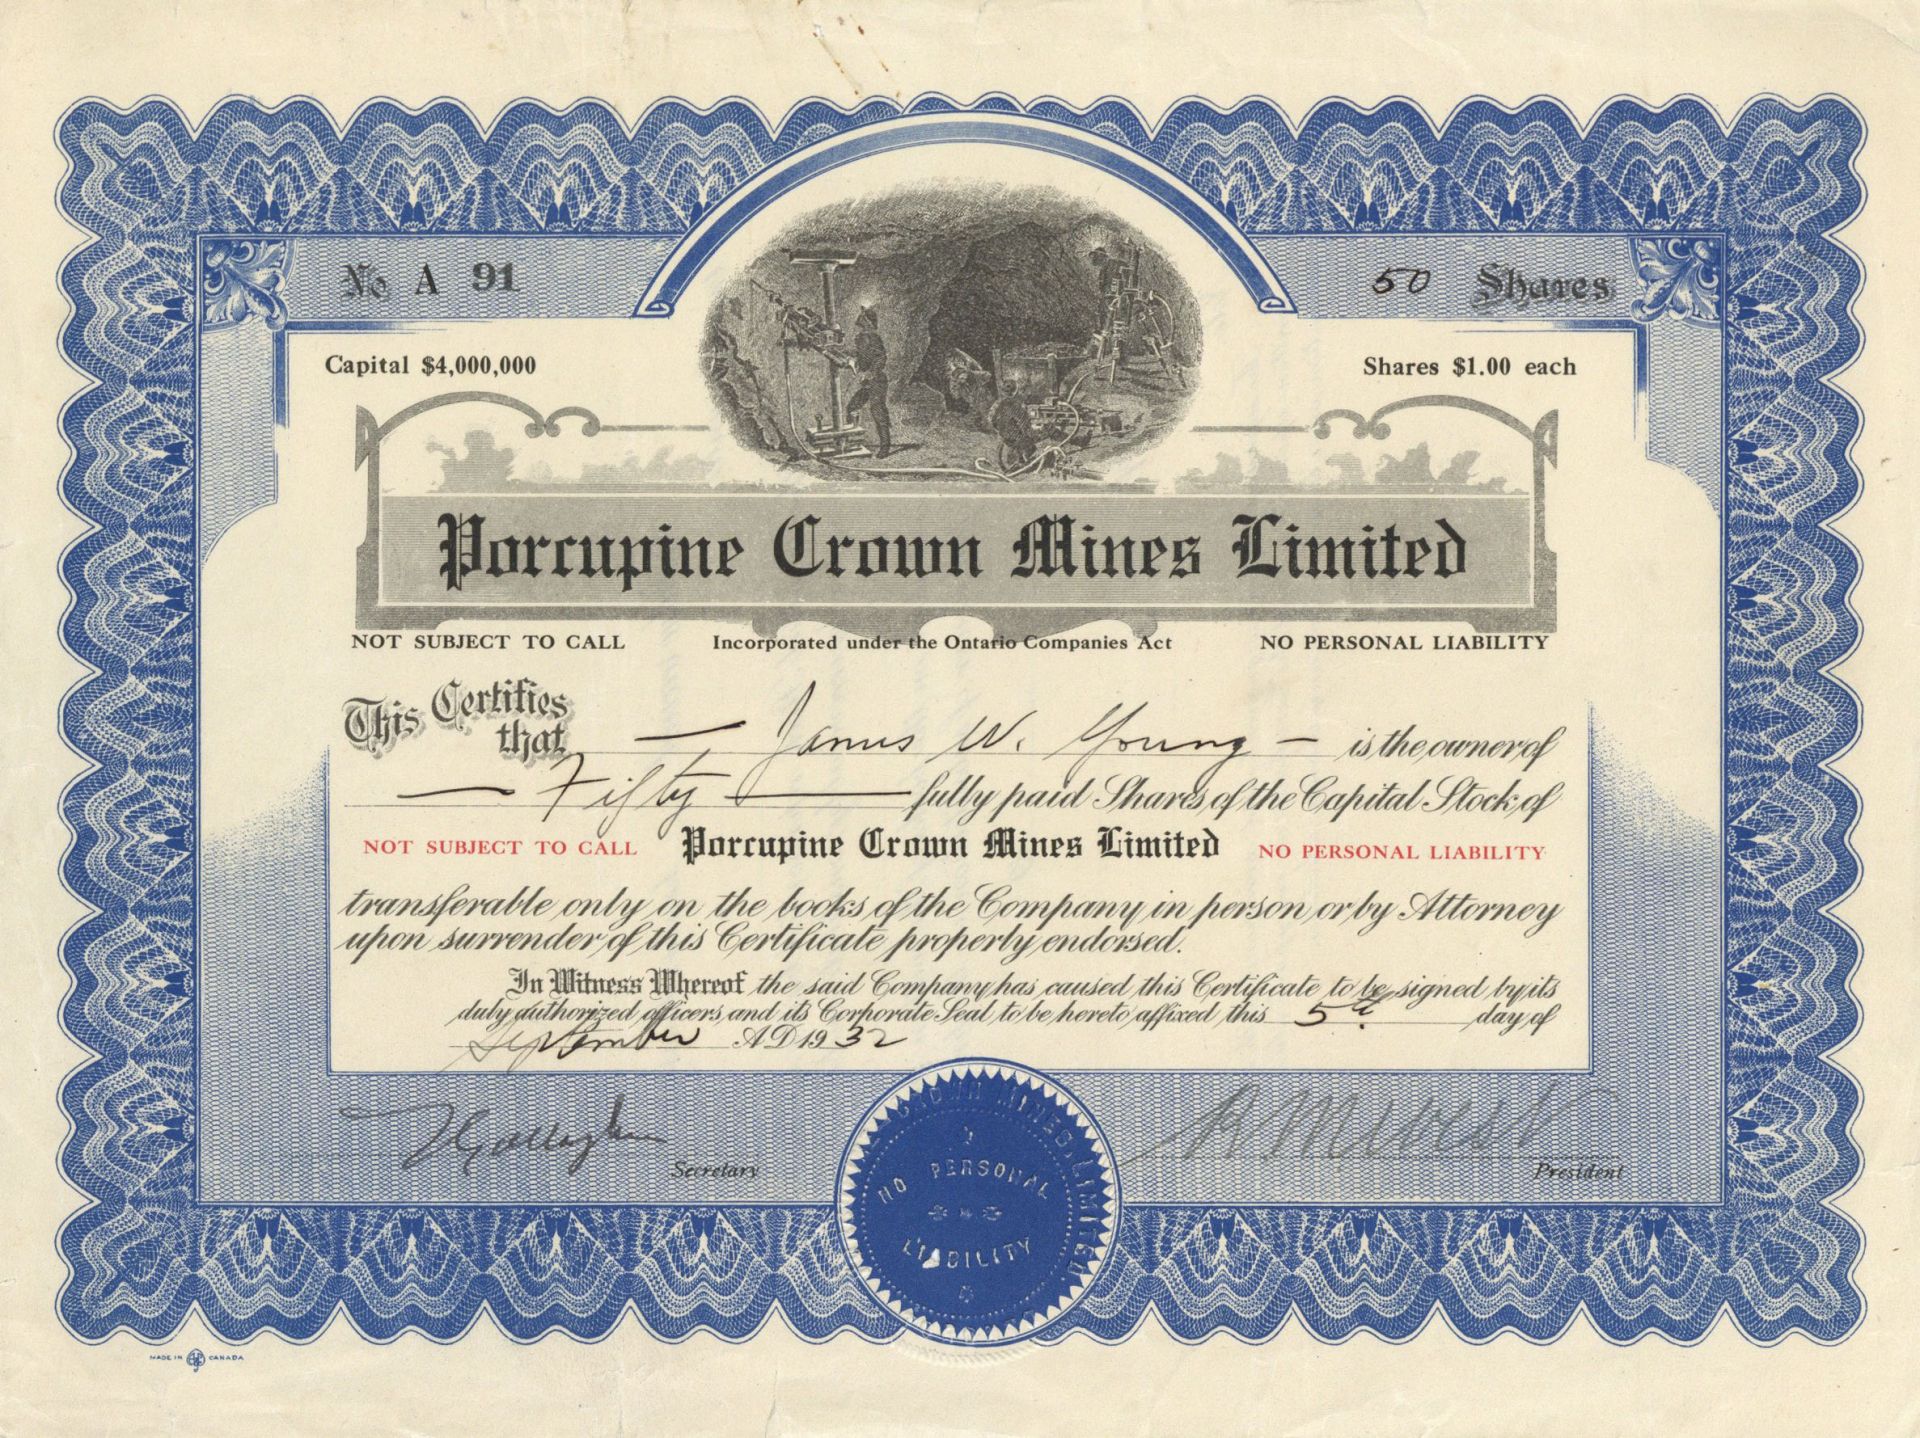 No A 91
50 Shares
Capital $4,000,000
Shares $1.00 each
Porcupine Crown Mines Limited
NOT SUBJECT TO CALL
Incorporated under the Ontario Companies Act
NO PERSONAL LIABILITY
This Certifies that James W. Young is the owner of
Fifty fully paid Shares of the Capital Stock of
NOT SUBJECT TO CALL Porcupine Crown Mines Limited NO PERSONAL LIABILITY
transferable only on the books of the Company in person or by Attorney
upon surrender of this Certificate properly endorsed.
In Witness Whereof the said Company has caused this Certificate to be signed by its
duly authorized officers and its Corporate Seal to be hereto affixed this 5th day of
September A.D. 1932
Secretary
President
CROWN MINES LIMITED
NO PERSONAL
LIABILITY
MADE IN CANADA